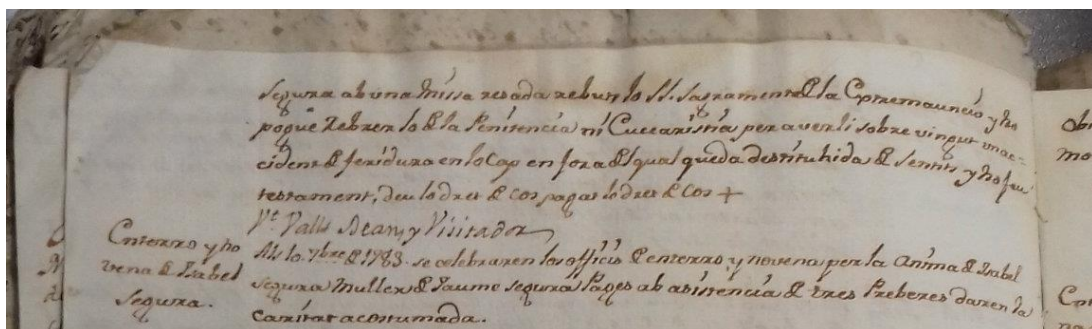 Segura ab una missa resada rebun lo SS. Sagrament de la Extremaunció y no
pogué Rebrer lo de la Penitencia ni Euccaristia per averli sobrevingut un ac-
cident de feridura en lo Cap en fora del qual queda destituhida de sentits y no feu
testament, deu lo dret de cos pagat lo dret de Cos +
Vt. Valls Dean, y Visitador
Enterro y no
vena de Isabel
Segura.
Als 10. 7bre de 1783. se celebraren los officis de enterro, y novena per la Anima de Isabel
Segura Muller de Jaume Segura Pages ab asistencia de tres Preberes daren la
Caritat acostumada.